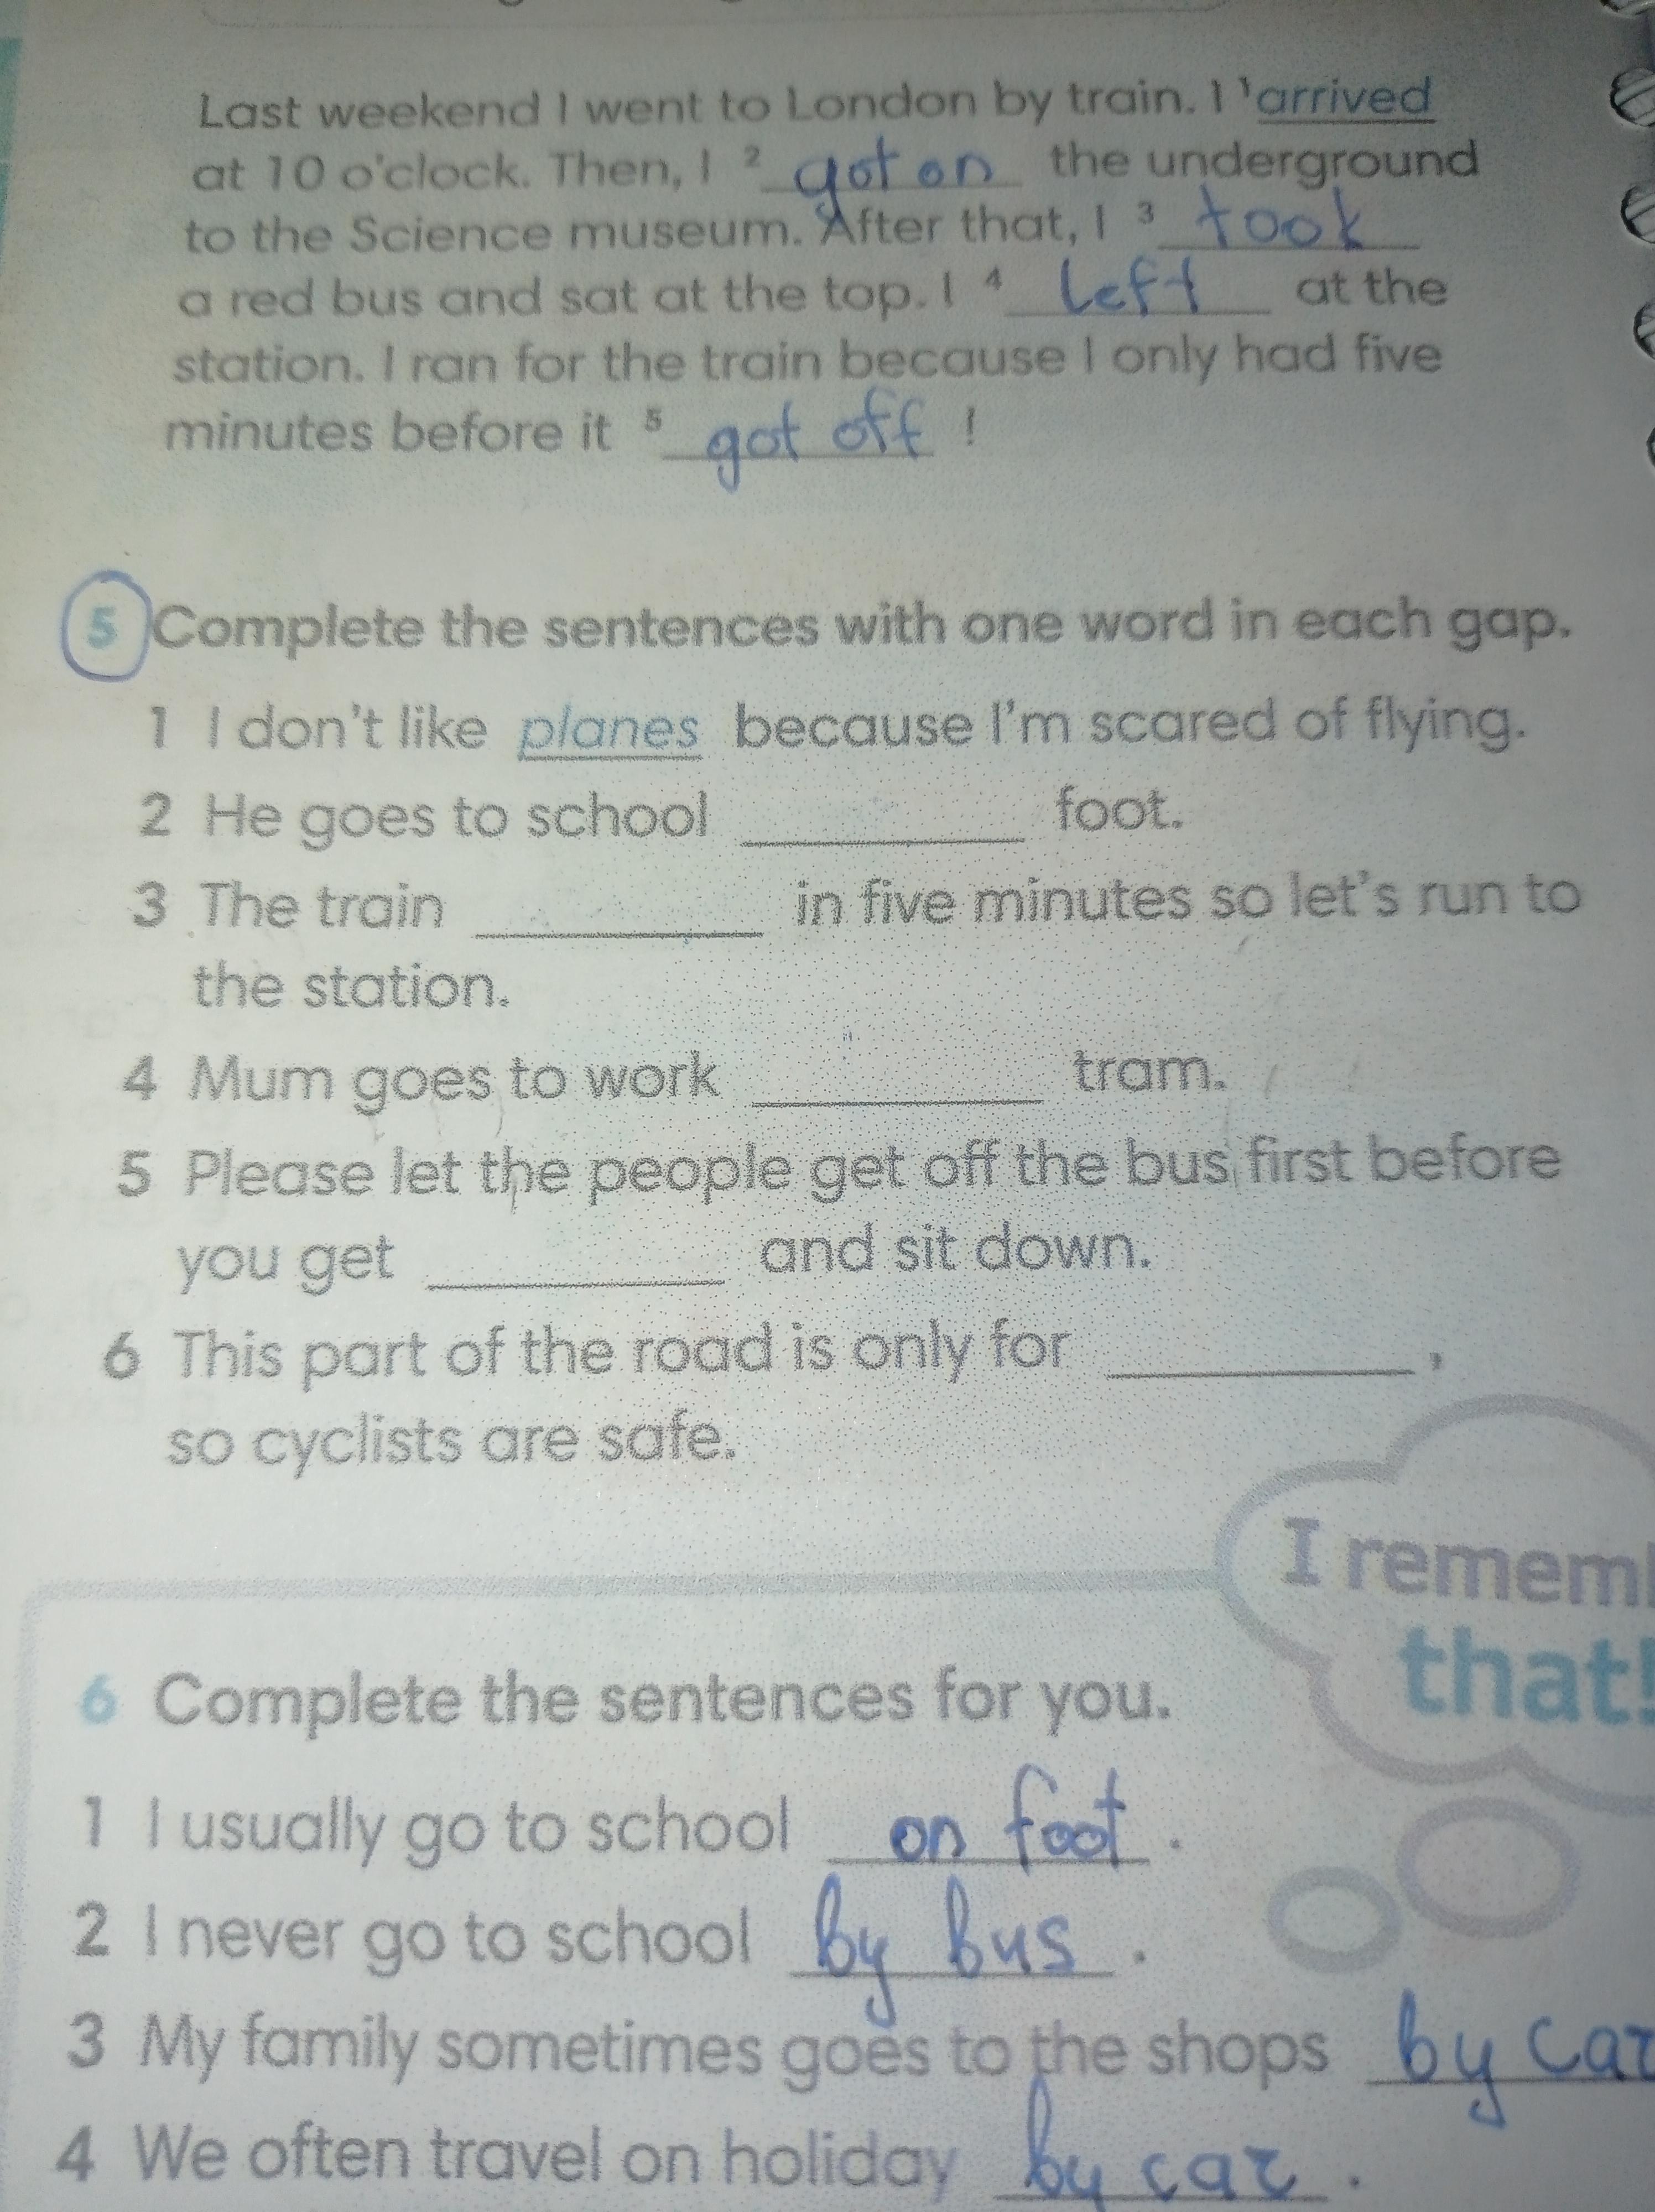 Last weekend I went to London by train. I ¹arrived
at 10 o'clock. Then, I ² got on the underground
to the Science museum. After that, I ³ took
a red bus and sat at the top. I ⁴ left at the
station. I ran for the train because I only had five
minutes before it ⁵ got off !
5 Complete the sentences with one word in each gap.
1 I don't like planes because I'm scared of flying.
2 He goes to school ________ foot.
3 The train ________ in five minutes so let's run to
the station.
4 Mum goes to work ________ tram.
5 Please let the people get off the bus first before
you get ________ and sit down.
6 This part of the road is only for ________,
so cyclists are safe.
I rememb
that!
6 Complete the sentences for you.
1 I usually go to school on foot.
2 I never go to school by bus.
3 My family sometimes goes to the shops by car
4 We often travel on holiday by car.